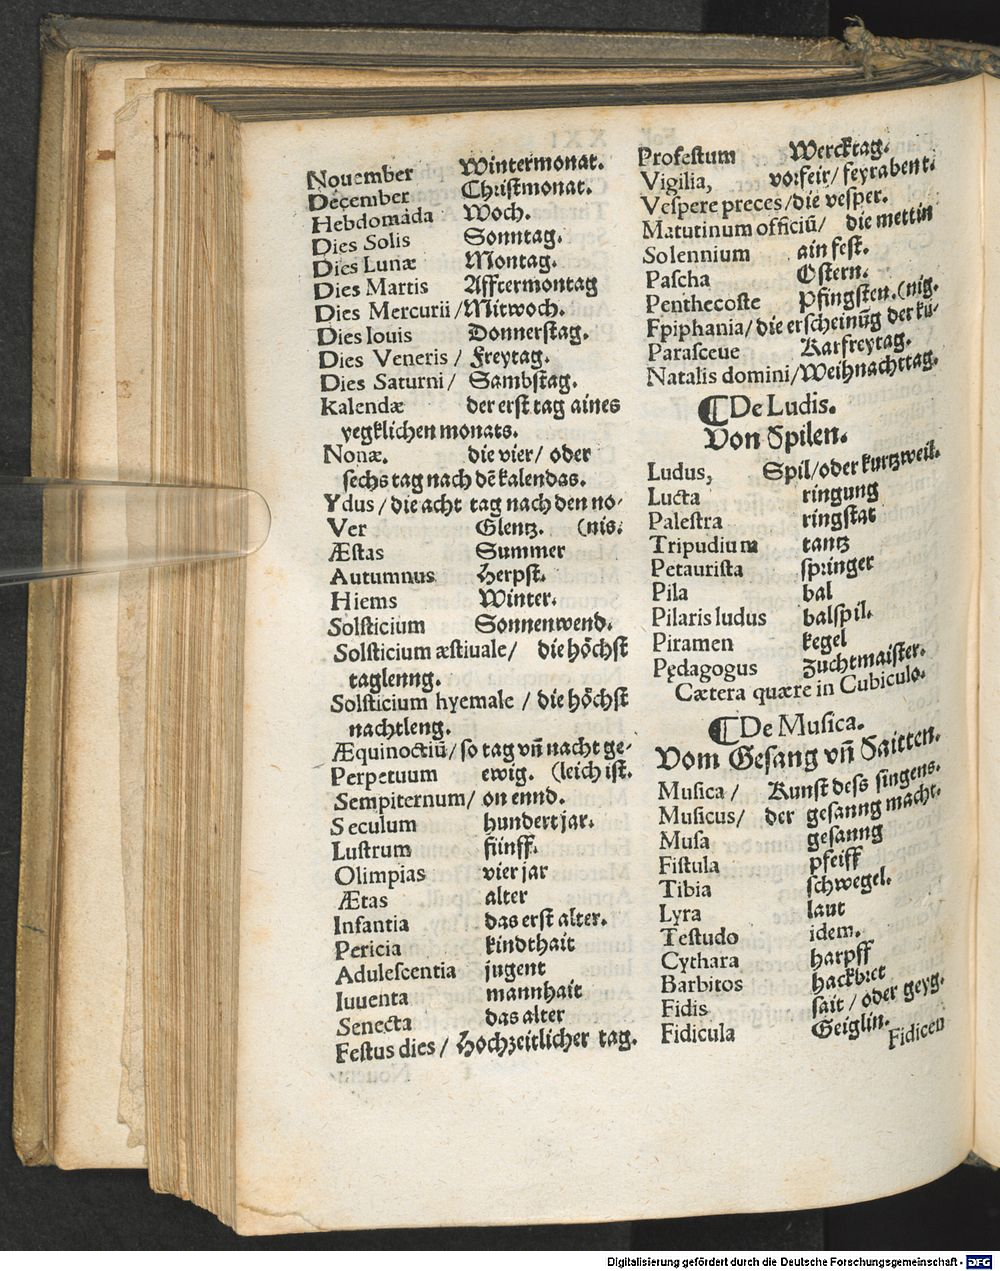 Nouember Wintermonat.
December Christmonat.
Hebdomada Woch.
Dies Solis Sonntag.
Dies Lunæ Montag.
Dies Martis Afftermontag
Dies Mercurii / Mitwoch.
Dies Iouis Donnerstag.
Dies Veneris / Freytag.
Dies Saturni / Sambstag.
Kalendæ der erst tag aines
yegklichen monats.
Nonæ. die vier / oder
sechs tag nach dē kalendas.
Ydus / die acht tag nach den no-
Ver Glentz. (nis.
Æstas Summer
Autumnus Herpst.
Hiems Winter.
Solsticium Sonnenwend.
Solsticium æstiuale / die höchst
taglenng.
Solsticium hyemale / die höchst
nachtleng.
Æquinoctiū / so tag vñ nacht ge-
Perpetuum ewig. (leich ist.
Sempiternum / on ennd.
Seculum hundert jar.
Lustrum fünff.
Olimpias vier jar
Ætas alter
Infantia das erst alter.
Pericia kindthait
Adulescentia jugent
Iuuenta mannhait
Senecta das alter
Festus dies / Hochzeitlicher tag.
Profestum Wercktag.
Vigilia, vorfeir / feyrabent.
Vespere preces / die vesper.
Matutinum officiū / die mettin
Solennium ain fest.
Pascha Ostern.
Penthecoste Pfingsten. (nig.
Fpiphania / die erscheinūg der kü-
Parasceue Karfreytag.
Natalis domini / Weihnachttag.
¶ De Ludis.
Von Spilen.
Ludus, Spil / oder kurtzweil.
Lucta ringung
Palestra ringstat
Tripudium tantz
Petaurista springer
Pila bal
Pilaris ludus balspil.
Piramen kegel
Pędagogus Zuchtmaister.
Cætera quære in Cubiculo.
¶ De Musica.
Vom Gesang vñ Saitten.
Musica / Kunst dess singens.
Musicus / der gesanng macht.
Musa gesanng
Fistula pfeiff
Tibia schwegel.
Lyra laut
Testudo idem.
Cythara harpff
Barbitos hackbret
Fidis sait / oder geyg.
Fidicula Geiglin.
Fidicen
Digitalisierung gefördert durch die Deutsche Forschungsgemeinschaft - DFG